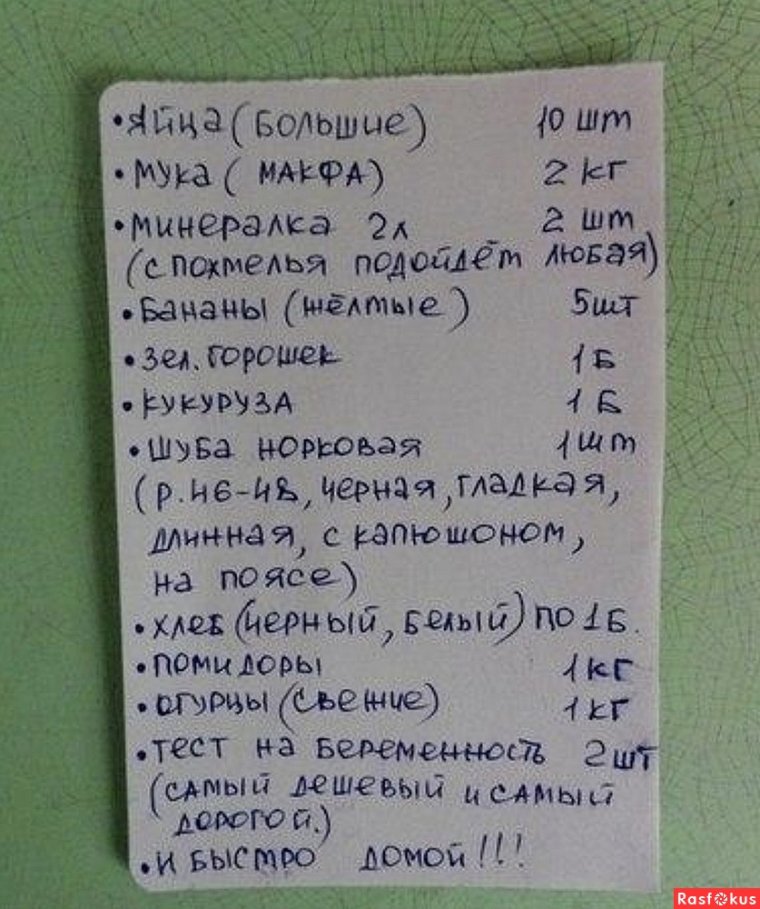 • Яйца (большие) 10 шт
• мука (МАКФА) 2 кг
• минералка 2л 2 шт
(с похмелья подойдёт любая)
• Бананы (жёлтые) 5шт
• зел. горошек 1 Б
• кукуруза 1 Б
• шуба норковая 1 шт
(р. 46-48, черная, гладкая,
длинная, с капюшоном,
на поясе)
• хлеб (черный, белый) по 1 Б.
• помидоры 1 кг
• огурцы (свежие) 1 кг
• тест на беременность 2 шт
(самый дешевый и самый
дорогой.)
• И быстро домой!!!
Rasfokus